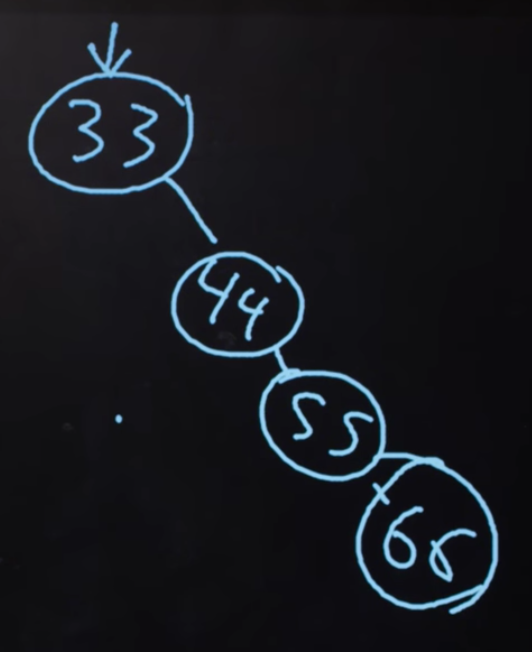 33
44
55
66